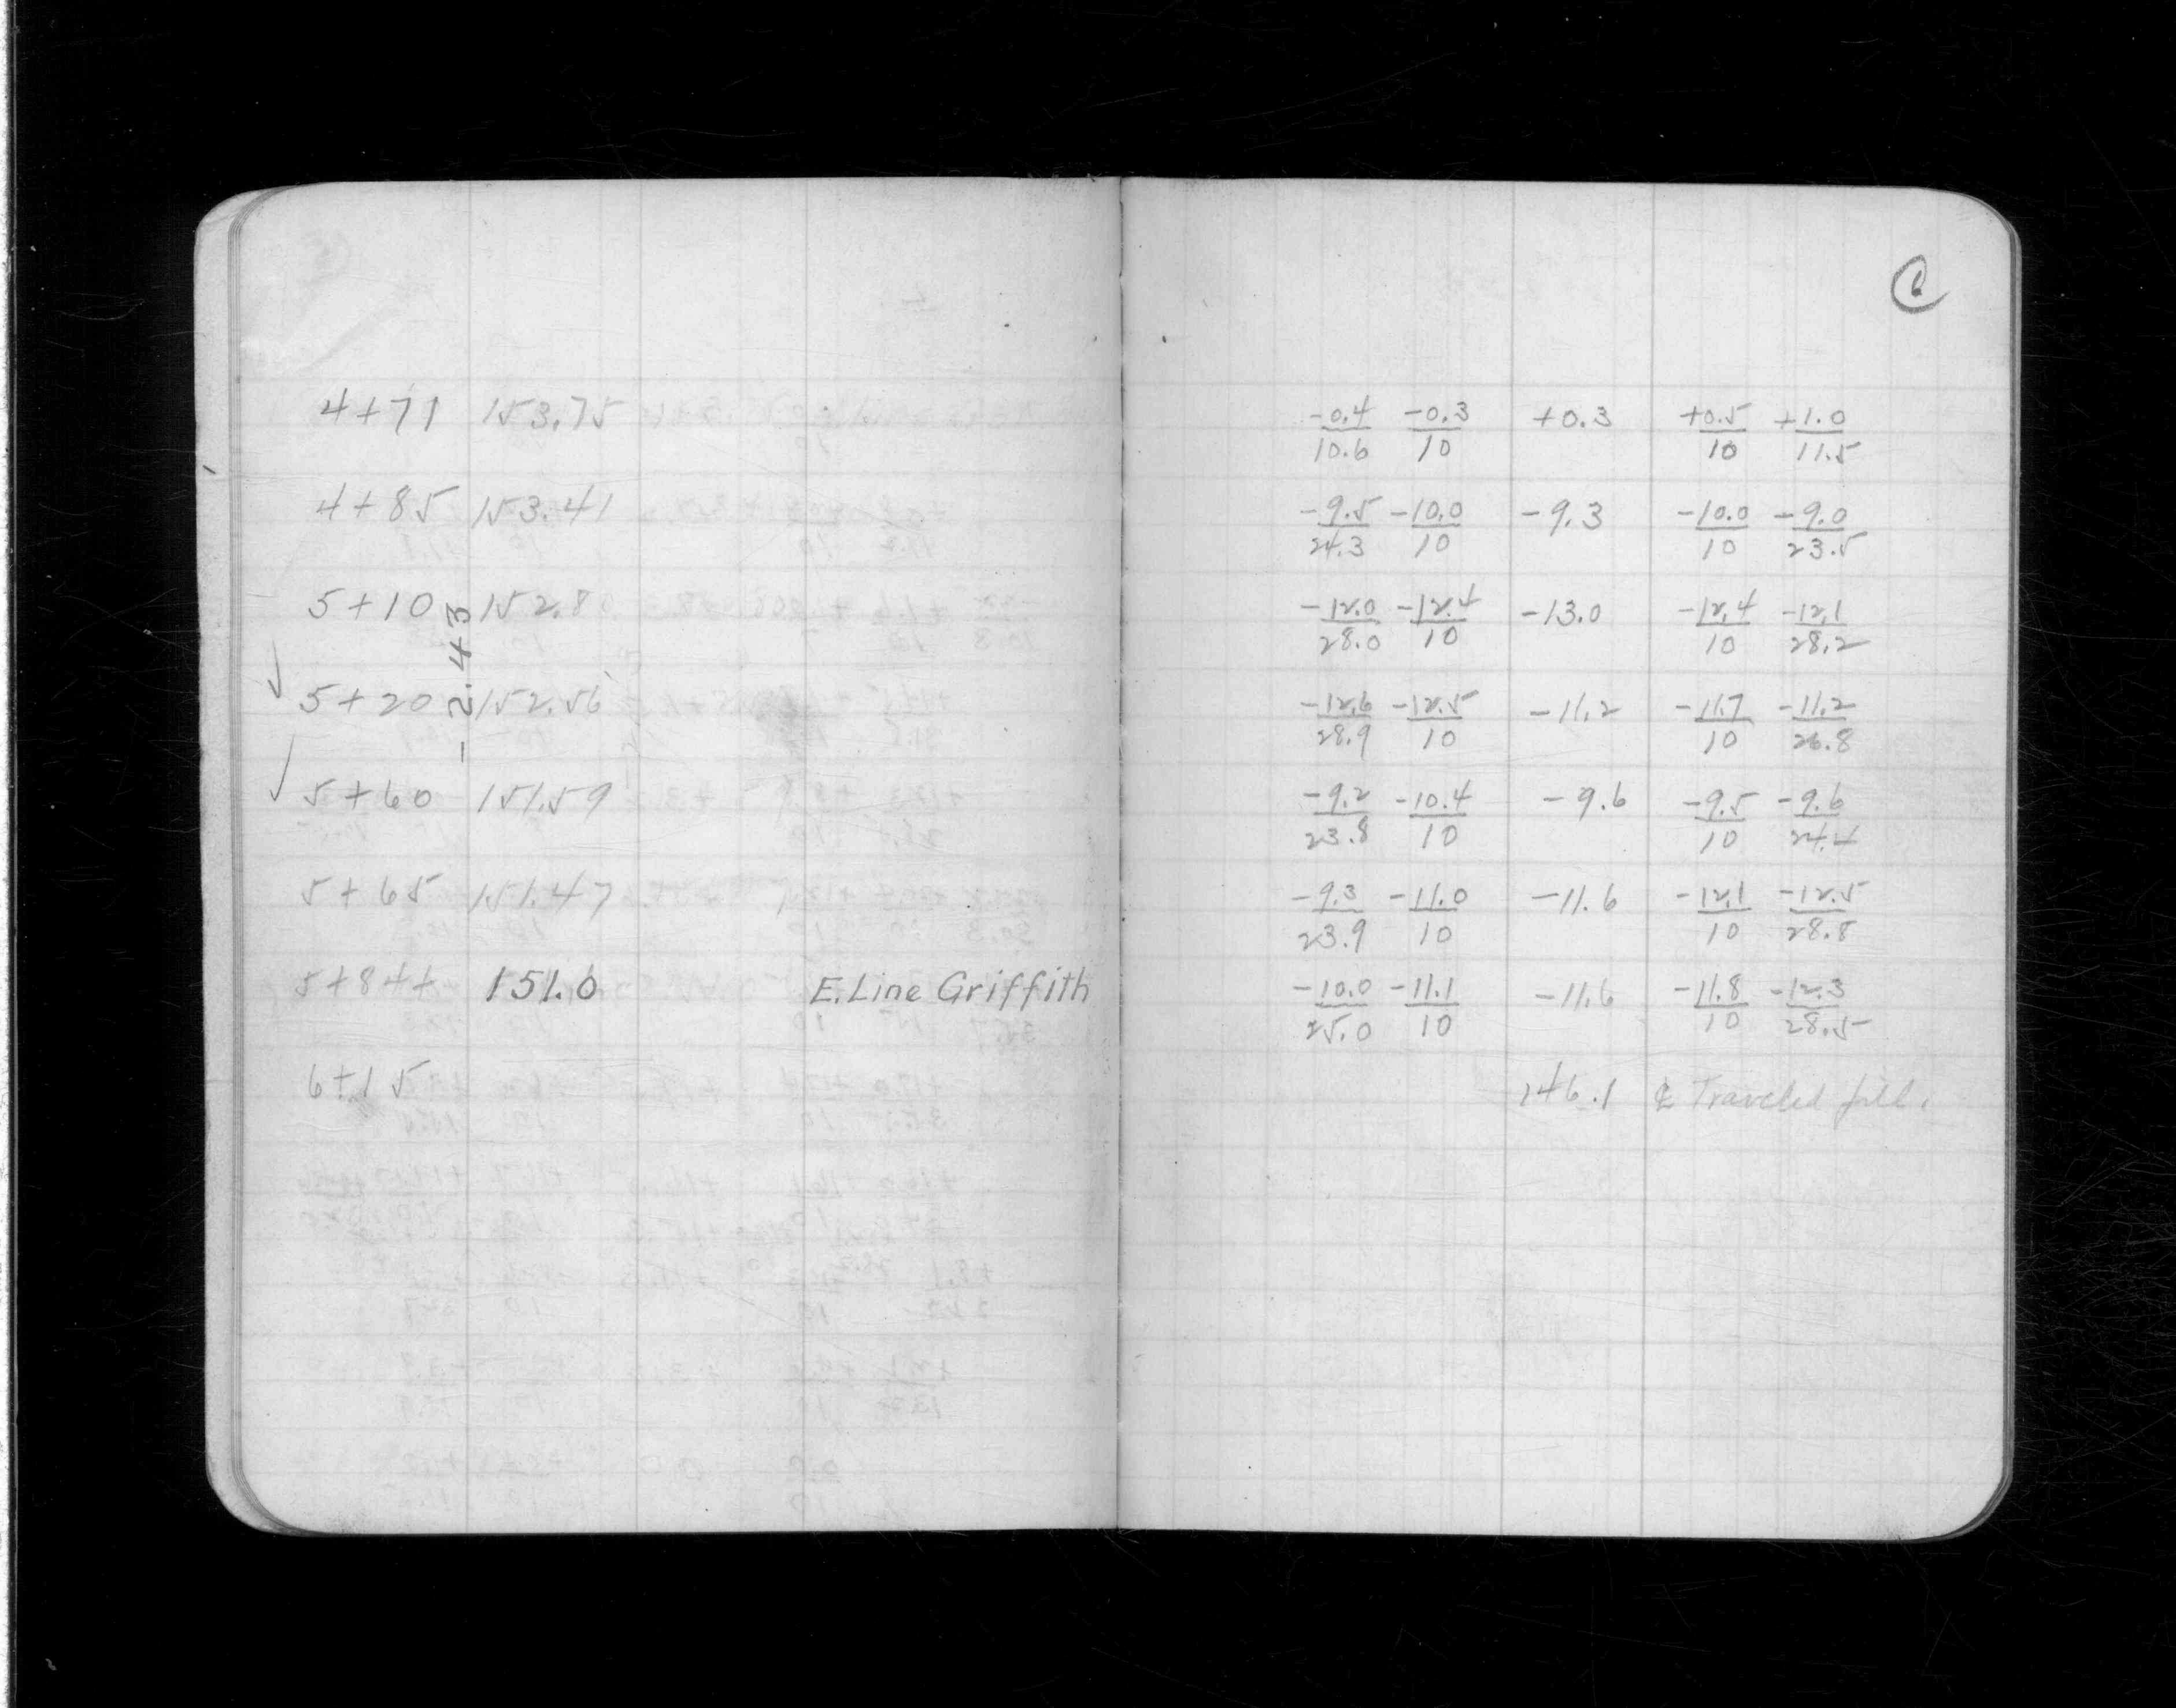 6
4+71 153.75 -0.4/10.6 -0.3/10 +0.3 +0.5/10 +1.0/11.5
4+85 153.41 -9.5/24.3 -10.0/10 -9.3 -10.0/10 -9.0/23.5
5+10 152.8 -12.0/28.0 -12.4/10 -13.0 -12.4/10 -12.1/28.2
-2.43
5+20 152.56 -12.6/28.9 -12.5/10 -11.2 -11.7/10 -11.2/26.8
5+60 151.59 -9.2/23.8 -10.4/10 -9.6 -9.5/10 -9.6/24.4
5+65 151.47 -9.3/23.9 -11.0/10 -11.6 -12.1/10 -12.5/28.8
5+84+ 151.0 E.Line Griffith -10.0/25.0 -11.1/10 -11.6 -11.8/10 -12.3/28.5
6+15 146.1 ℄ Traveled